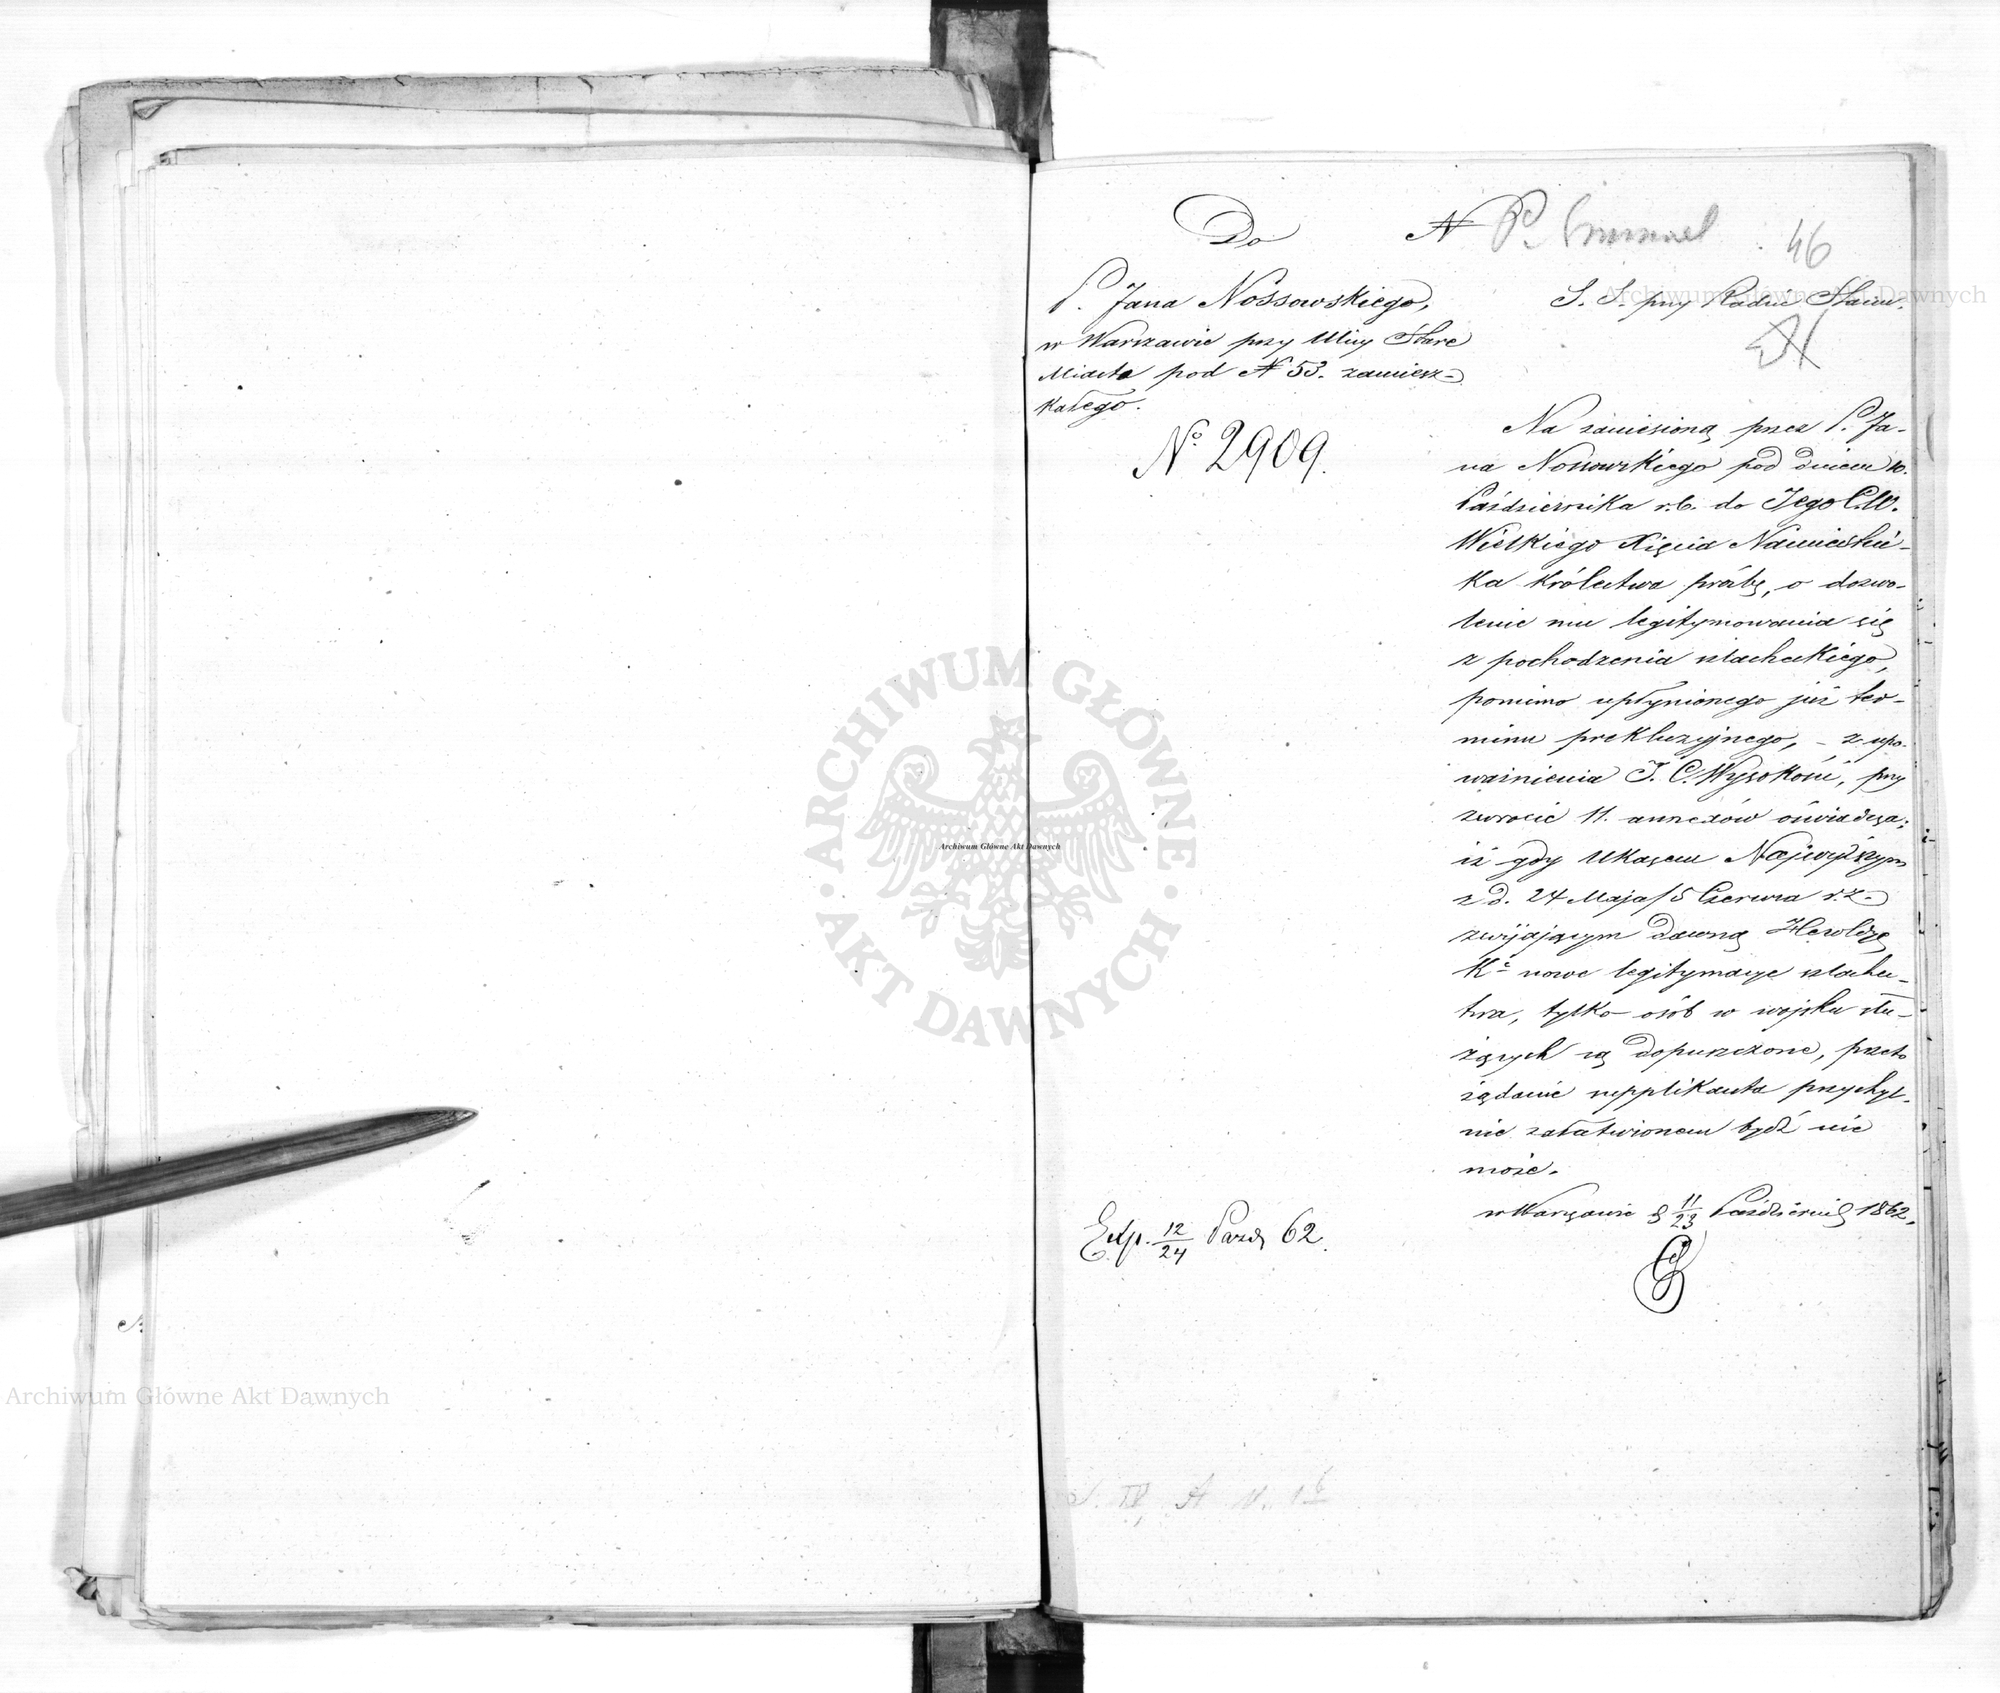 Do
P. Jana Nossowskiego,
w Warszawie przy Ulicy Stare
Miasto pod N 53. zamiesz-
kałego.
No. 2909.
N
P.
46
S. S. przy Radzie Stanu.
Na zaniesioną przez P. Ja-
na Nossowskiego pod dniem 10.
Października r.b. do Jego C.W.
Wielkiego Xięcia Namiestni-
ka Królestwa prośbę, o dozwo-
lenie mu legitymowania się
z pochodzenia szlacheckiego,
pomimo upłynionego już ter-
minu prekluzyjnego, – z upo-
ważnienia J. C. Wysokości, przy
zwrocie 11. annexów oświadcza;
iż gdy Ukazem Najwyższym
z d. 24 Maja/5 Czerwca r.z.
zwijającym dawną Heroldyę
Ka nowe legitymacye szlache-
twa, tylko osób w wojsku słu-
żących są dopuszczone, przeto
żądanie supplikanta przychyl-
nie załatwionem bydź nie
może.
w Warszawie d 11/23 Październik 1862.
Exp. 12/24 Paźd 62.
S. IV A N. 16
Archiwum Główne Akt Dawnych
Archiwum Główne Akt Dawnych
ARCHIWUM GŁÓWNE
AKT DAWNYCH
Archiwum Główne Akt Dawnych